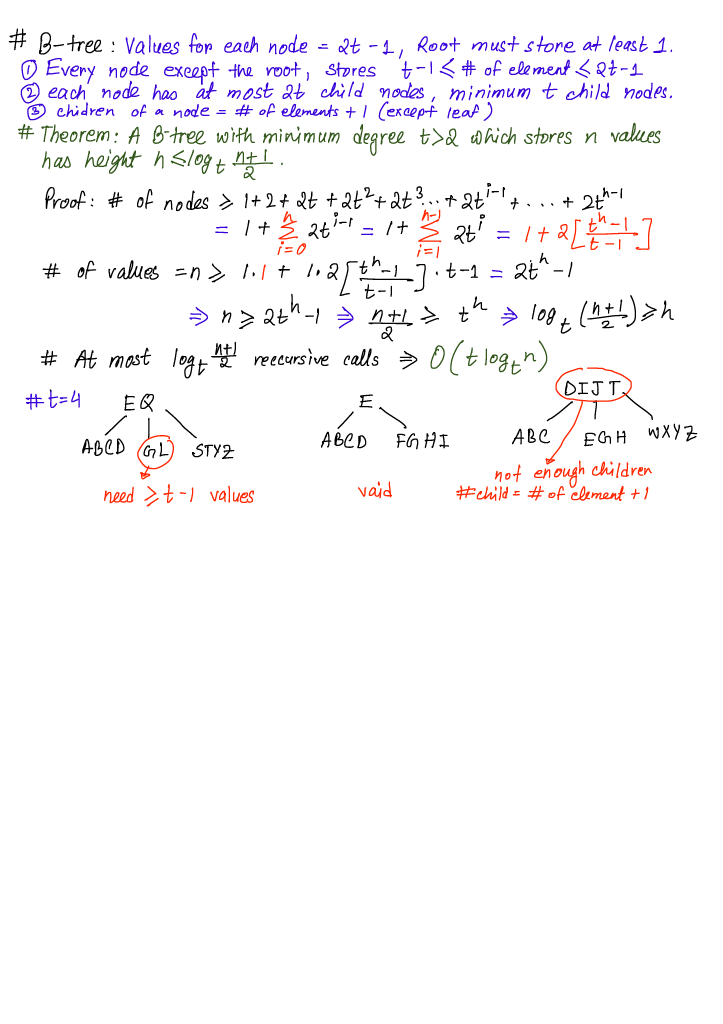 # B-tree : Values for each node = 2t - 1, Root must store at least 1.
① Every node except the root, stores t-1 ≤ # of element ≤ 2t-1
② each node has at most 2t child nodes, minimum t child nodes.
③ chidren of a node = # of elements + 1 (except leaf)
# Theorem: A B-tree with minimum degree t>2 which stores n values
has height h ≤ log_t (n+1)/2 .
Proof: # of nodes ≥ 1+2+2t+2t²+2t³...+2t^(i-1)+...+2t^(h-1)
= 1 + Σ_{i=0}^{h} 2t^(i-1) = 1+ Σ_{i=1}^{h-1} 2t^i = 1+2[(t^h-1)/(t-1)]
# of values = n ≥ 1.1 + 1.2[(t^h-1)/(t-1)].t-1 = 2t^h-1
⇒ n ≥ 2t^h-1 ⇒ (n+1)/2 ≥ t^h ⇒ log_t ((n+1)/2) ≥ h
# At most log_t (n+1)/2 reccursive calls ⇒ O(t log_t n)
# t=4 EQ E DIJT
ABCD GL STYZ ABCD FGHI ABC EGH WXYZ
need ≥ t-1 values vaid not enough children
#child = # of element +1